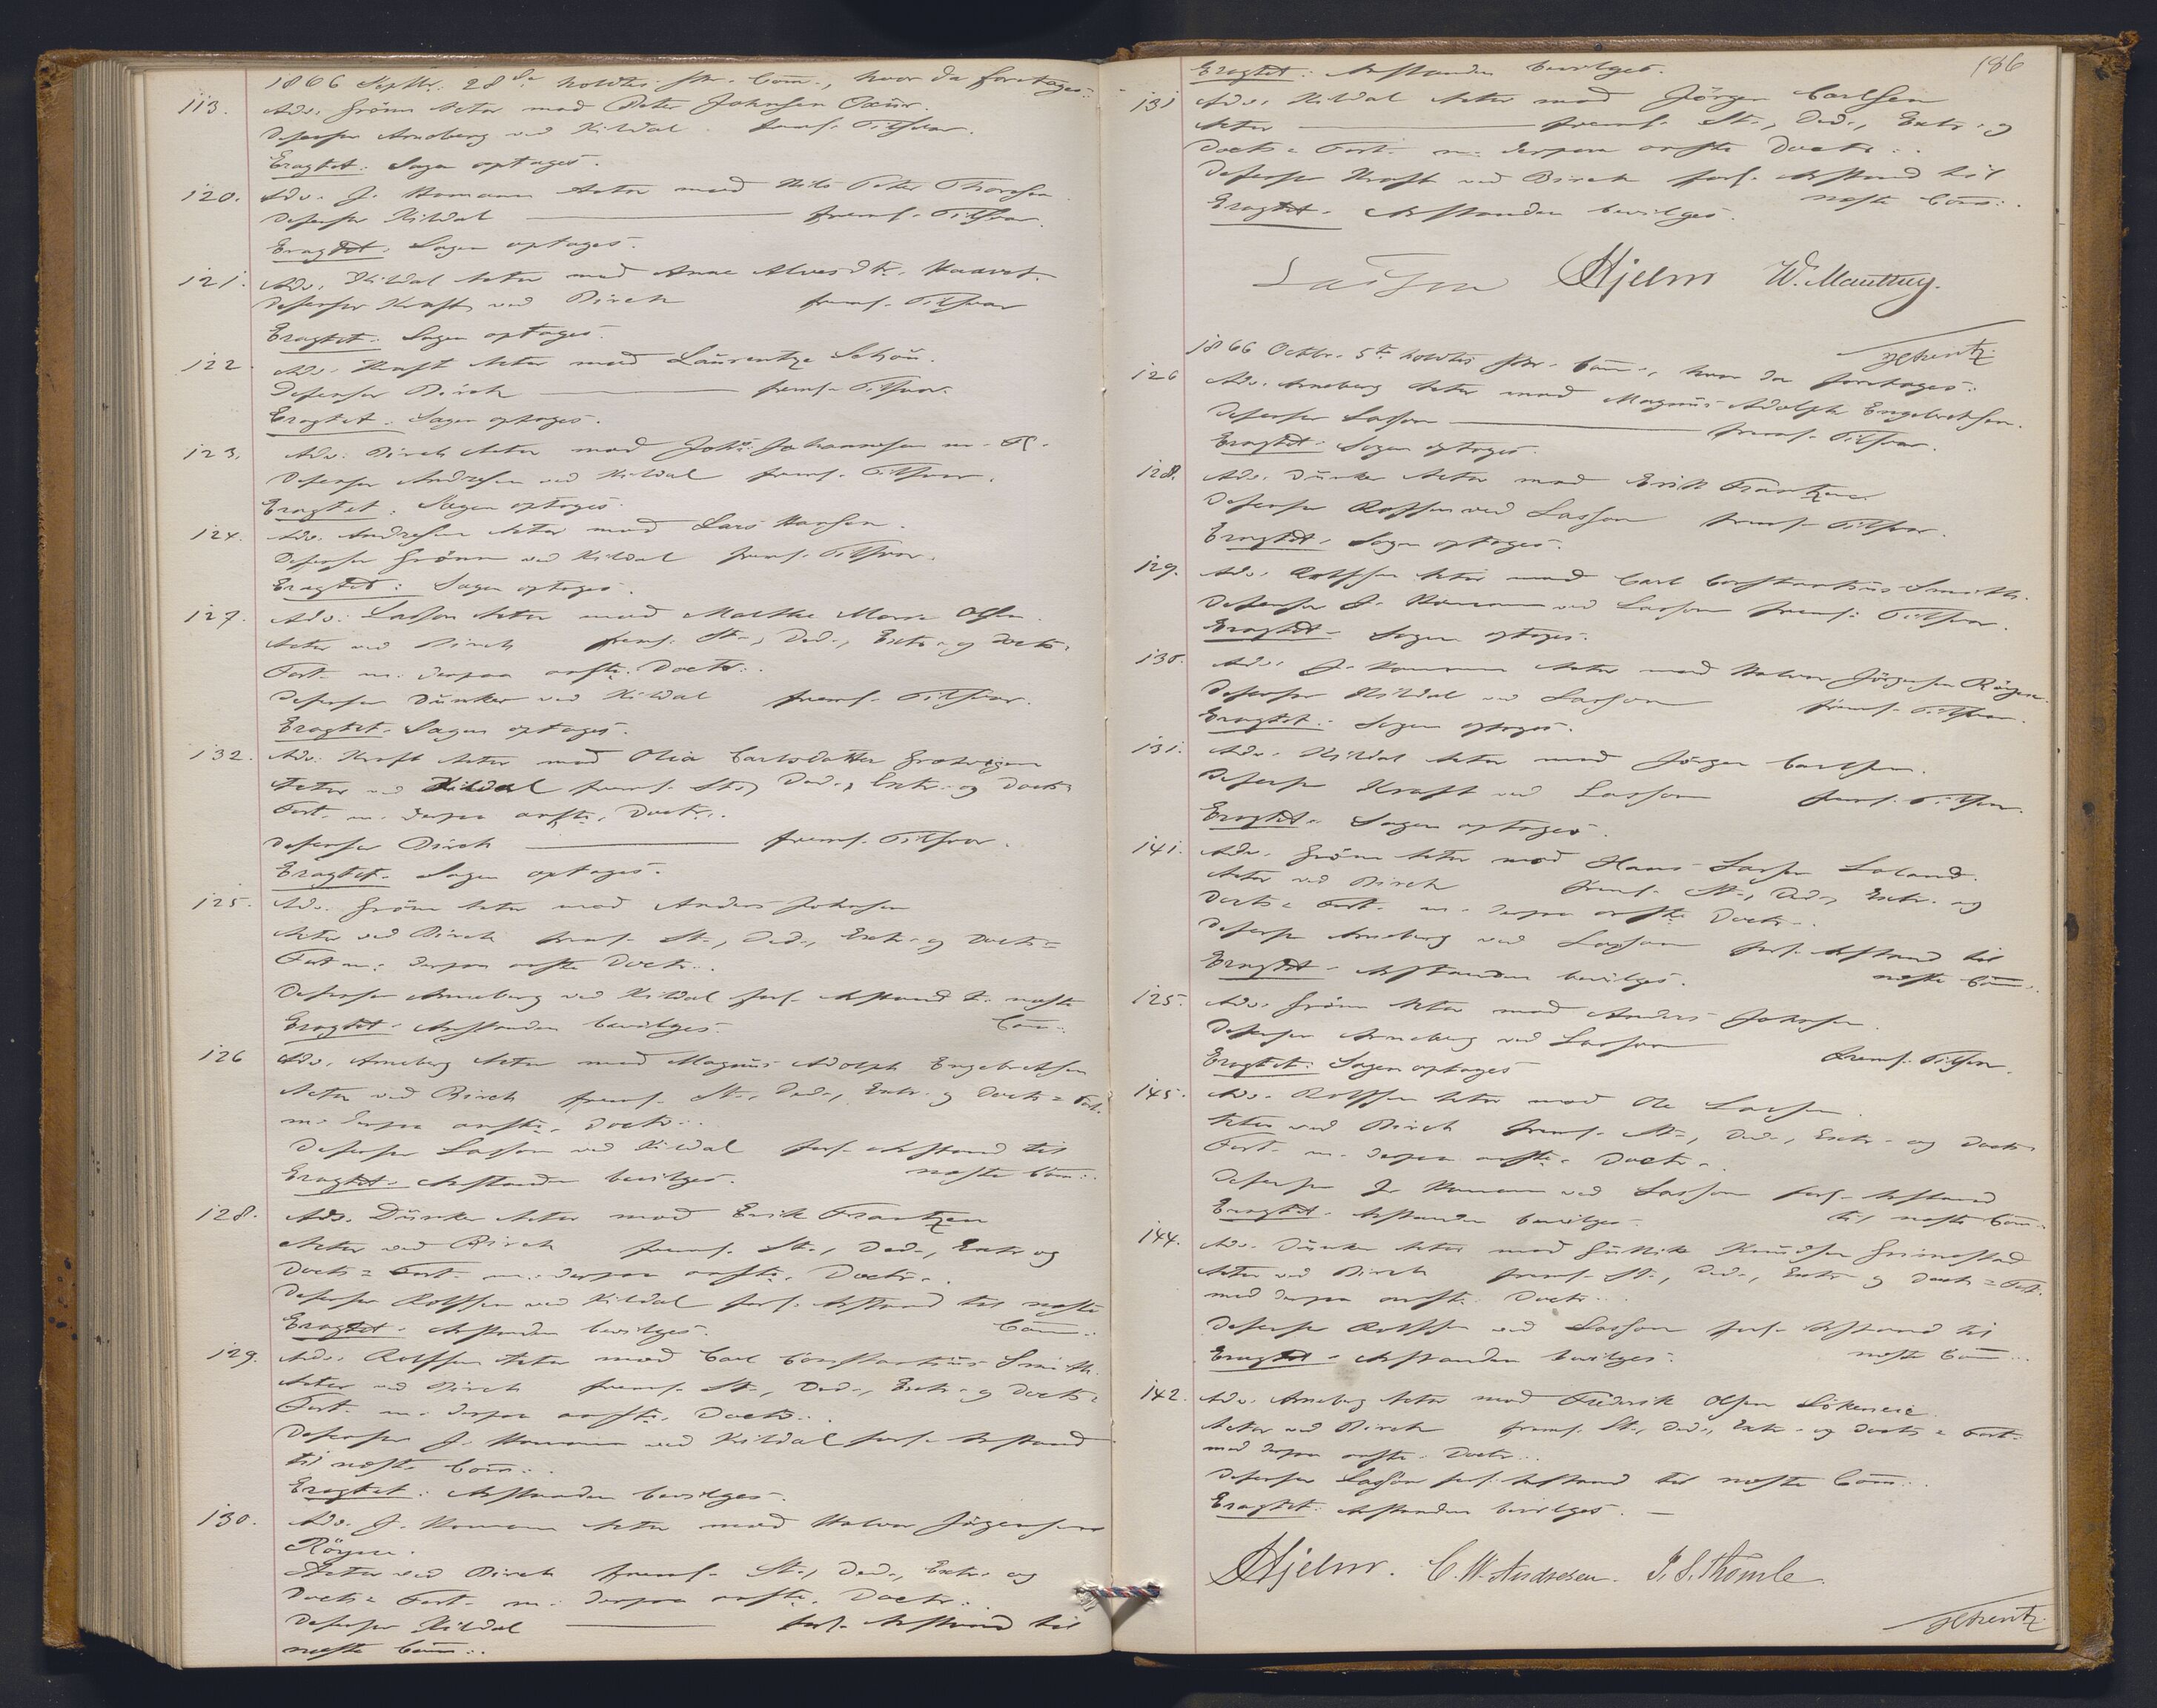 1866 Septbr. 28de holdtes skr. Com., hvor da foretages:
113. Adv. Grönn Actor mod Peter Johnsen
Defensor Arneberg ved Kildal freml. Tilsvar.
Eragtet: Sagen optages.
120. Adv. J. Homann Actor mod Nils Peter Thoresen
Defensor Kildal freml. Tilsvar.
Eragtet: Sagen optages.
121. Adv. Kildal Actor mod Anne Alvesdtr.
Defensor Kraft ved Birch freml. Tilsvar
Eragtet: Sagen optages.
122 Adv. Kraft Actor mod Laurentze Schöu.
Defensor Birch freml. Tilsvar.
Eragtet: Sagen optages.
123. Adv. Birch Actor mod Johs. Johannesen m. Fl.
Defensor Andresen ved Kildal freml. Tilsvar.
Eragtet: Sagen optages.
124. Adv. Andresen Actor mod Lars Hansen.
Defensor Grönn ved Kildal freml. Tilsvar.
Eragtet: Sagen optages.
127. Adv. Lasson Actor mod Marthe Marie Olsen.
Actor ved Birch freml. St., Ded., Extr. og Docts.
Fort. m. derpaa anfte. Doctr.
Defensor Dunker ved Kildal freml. Tilsvar.
Eragtet. Sagen optages.
132. Adv. Kraft Actor mod Olia Carlsdatter
Actor ved Kildal freml. St., Ded., Extr. og Docts
Fort. m. derpaa anfte. Doctr.
Defensor Birch freml. Tilsvar.
Eragtet. Sagen optages.
125. Adv. Grönn Actor mod Anders Johnsen
Actor ved Birch freml. St., Ded., Extr. og Docts=
Fort m. derpaa anfte Doctr.
Defensor Arneberg ved Kildal forl. Anstand t. næste
Eragtet. Anstanden bevilges. Com.
126 Adv. Arneberg Actor mod Magnus Adolph Engebretsen
Actor ved Birch freml. St., Ded., Extr. og Docts= Fort.
m. derpaa anfte. Doctr.
Defensor Lasson ved Kildal forl. Anstand til
Eragtet. Anstanden bevilges. næste Com.
128. Adv. Dunker Actor mod Erik Frantzen
Actor ved Birch freml. St., Ded., Extr og
Docts= Fort. m. derpaa anfte. Doctr.
Defensor Rolfsen ved Kildal forl. Anstand til næste
Eragtet. Anstanden bevilges. Com.
129. Adv. Rolfsen Actor mod Carl Constantius Smith.
Actor ved Birch freml. St., Ded., Extr. og Docts=
Fort. m. derpaa anfte. Doctr.
Defensor J. Homann ved Kildal forl. Anstand
til næste Com.
Eragtet: Anstanden bevilges.
130. Adv. J. Homann Actor mod Halvor Jörgensen
Röyne.
Actor ved Birch freml. St., Ded., Extr. og
Docts= Fort. m. derpaa anfte. Doctr.
Defensor Kildal forl. Anstand til
næste Com.
186
Eragtet: Anstanden bevilges.
131 Adv. Kildal Actor mod Jörgen Carlsen
Actor freml. St., Ded., Extr. og
Docts= Fort. m. derpaa anfte Doctr.
Defensor Kraft ved Birch forl. Anstand til
Eragtet. Anstanden bevilges. næste Com.
Lasson Hjelm W.
1866 Octbr. 5te holdtes skr. Com., hvor da foretages:
126 Adv. Arneberg Actor mod Magnus Adolph Engebretsen.
Defensor Lasson freml. Tilsvar.
Eragtet: Sagen optages.
128. Adv. Dunker Actor mod Erik Frantzen
Defensor Rolfsen ved Lasson freml. Tilsvar.
Eragtet. Sagen optages.
129. Adv. Rolfsen Actor mod Carl Constantius Smith.
Defensor J. Homann ved Lasson freml. Tilsvar.
Eragtet. Sagen optages.
130. Adv. J. Homann Actor mod Halvor Jörgensen Röyne.
Defensor Kildal ved Lasson freml. Tilsvar.
Eragtet. Sagen optages.
131. Adv. Kildal Actor mod Jörgen Carlsen.
Defensor Kraft ved Lasson freml. Tilsvar.
Eragtet. Sagen optages.
141. Adv. Grönn Actor mod Hans Larsen Loland.
Actor ved Birch freml. St., Ded., Extr. og
Docts= Fort. m. derpaa anfte Doctr.
Defensor Arneberg ved Lasson forl. Anstand til
Eragtet. Anstanden bevilges. næste Com.
125. Adv. Grönn Actor mod Anders Johnsen.
Defensor Arneberg ved Lasson freml. Tilsvar.
Eragtet: Sagen optages
145. Adv. Rolfsen Actor mod Ole Larsen.
Actor ved Birch freml. St., Ded., Extr. og Docts=
Fort. m. derpaa anfte. Doctr.
Defensor J. Homann ved Lasson forl. Anstand
Eragtet. Anstanden bevilges. til næste Com.
144. Adv. Dunker Actor mod Gullik Knudsen Grimestad
Actor ved Birch freml. St., Ded., Extr. og Docts= Fort.
med derpaa anfte. Doctr.
Defensor Rolfsen ved Lasson forl. Anstand til
Eragtet. Anstanden bevilges. næste Com.
142. Adv. Arneberg Actor mod Frederik Olsen Lökeneie
Actor ved Birch freml. St., Ded., Extr. og Docts= Fort.
med derpaa anfte. Doctr.
Defensor Lasson forl. Anstand til næste Com.
Eragtet: Anstanden bevilges. —
Hjelm. C. W. Andresen. J. S. Thomle.